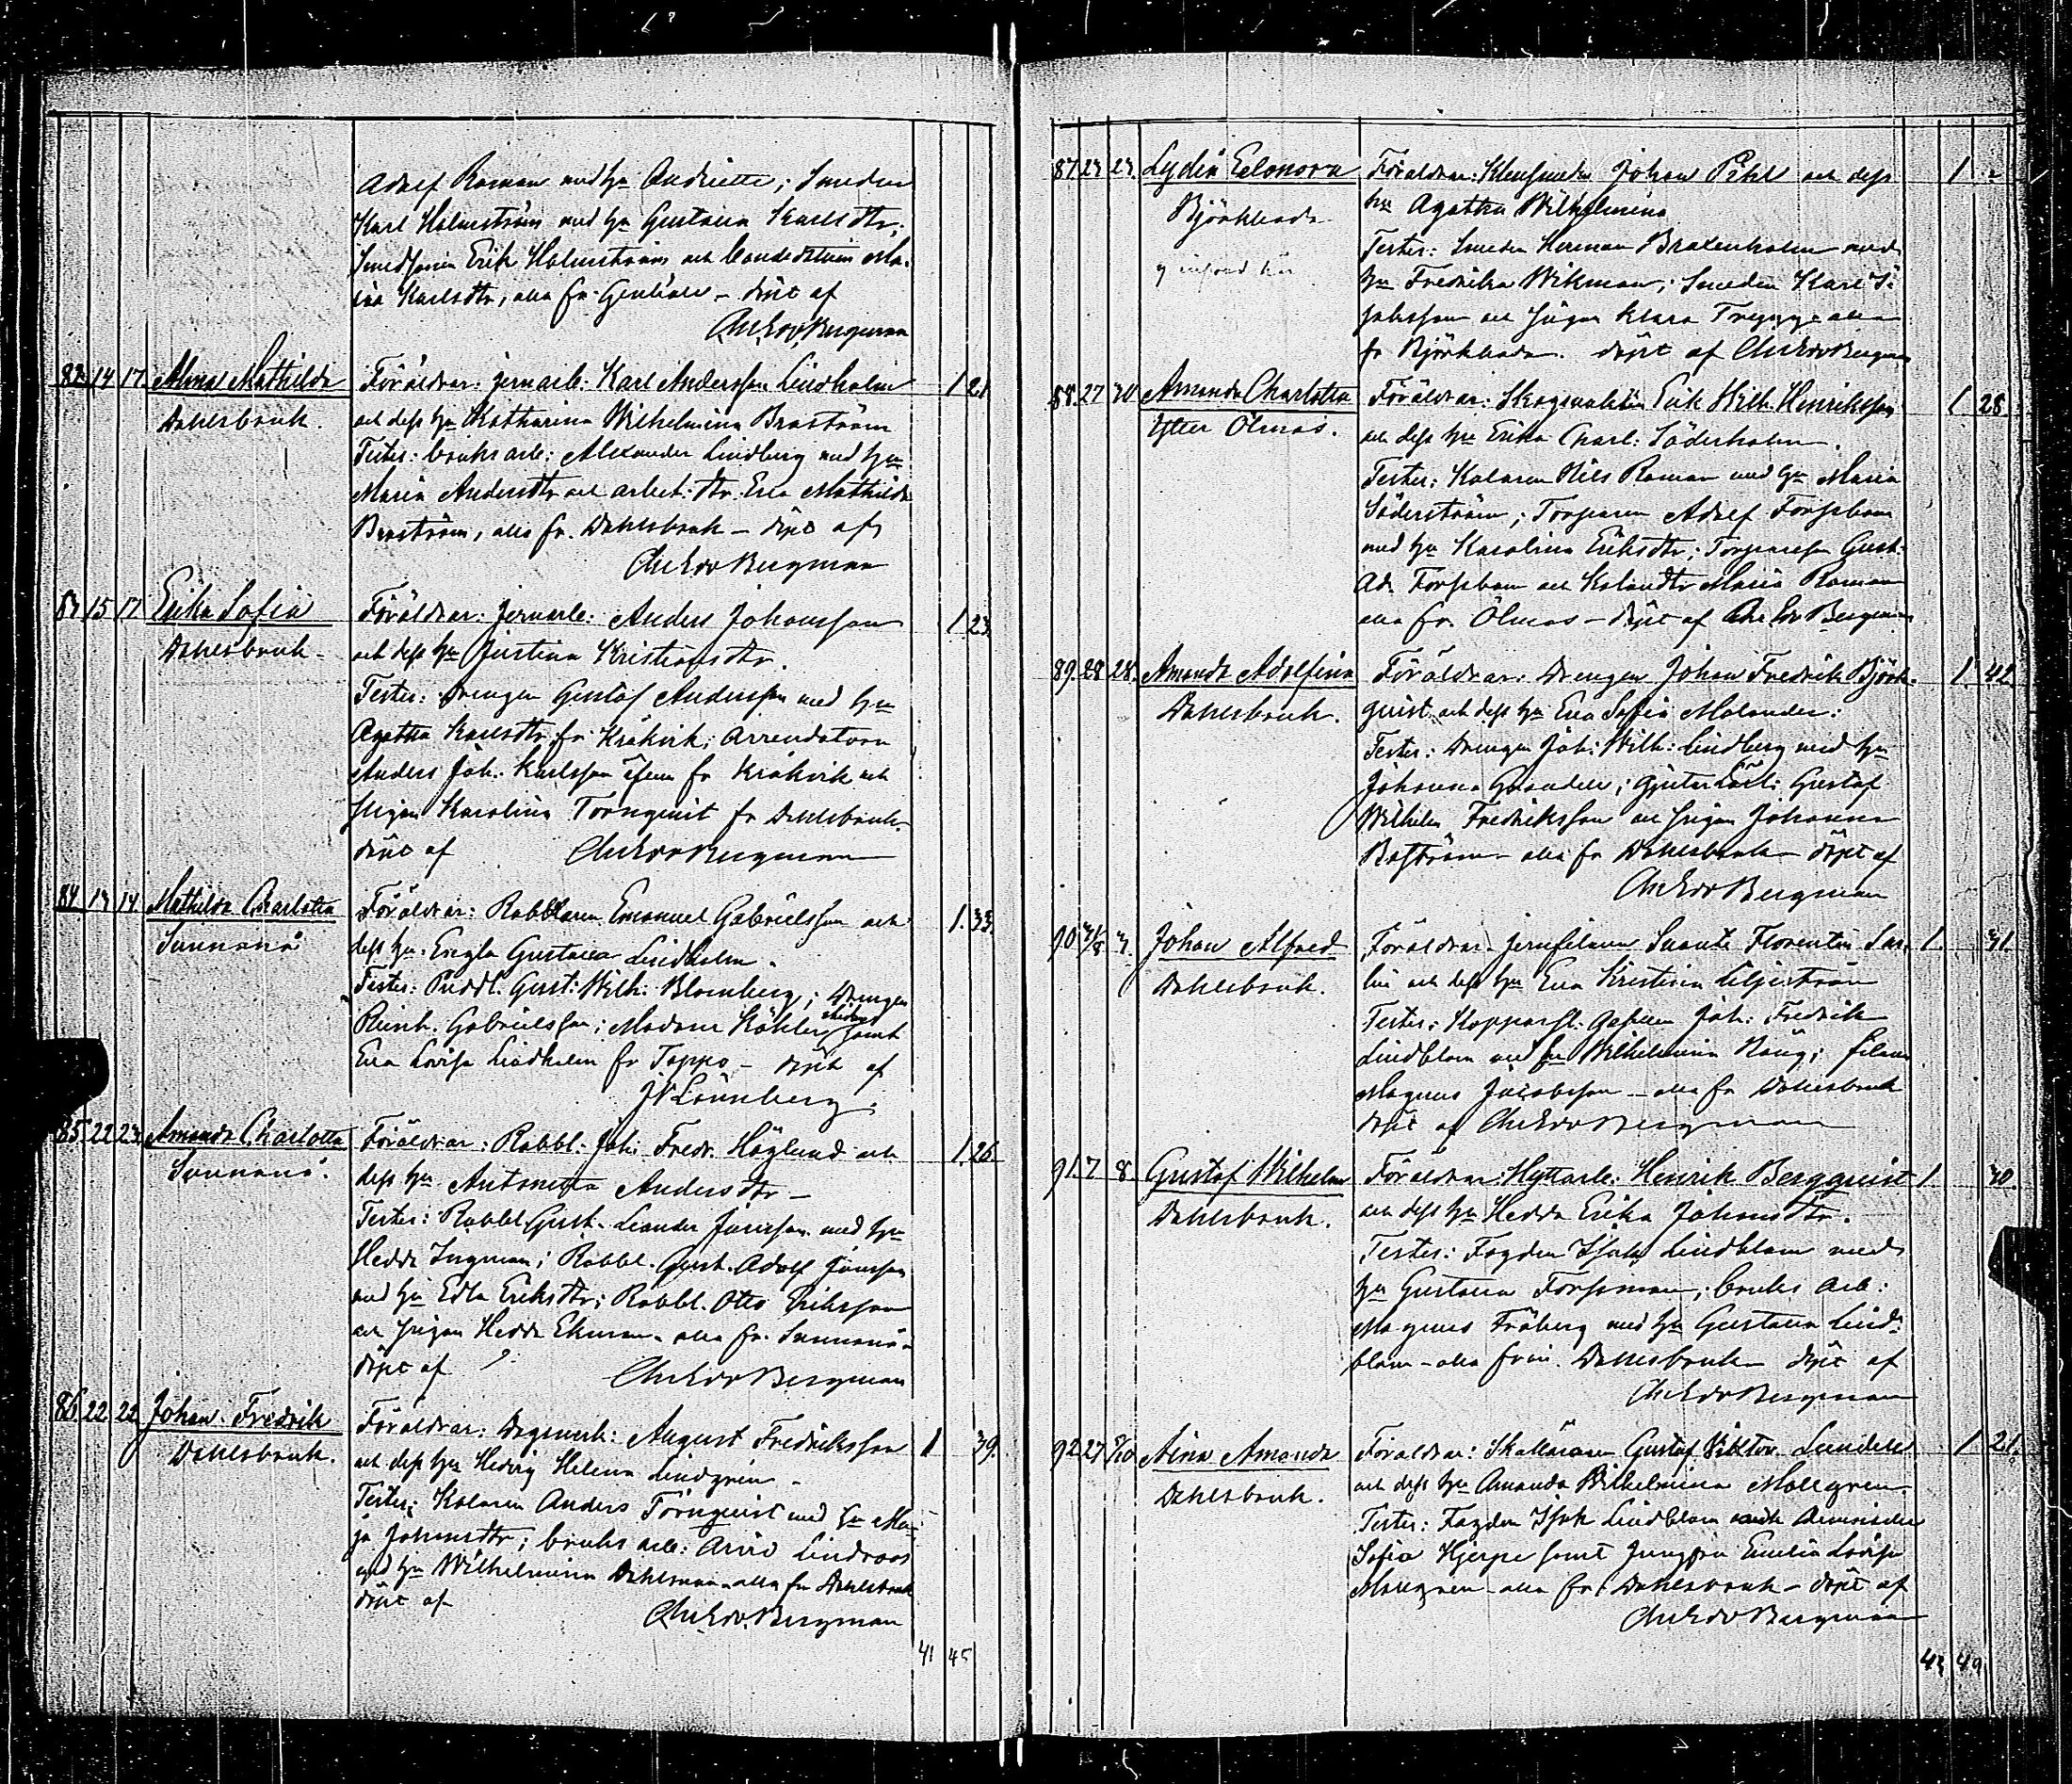 Adolf Roman med hu Andriette; Smeden
Karl Holmström med hu Gustava Karlsdtr;
Smedssonen Erik Holmström och bondedottern Ma-
ria Karlsdtr, alla fr. - döpt af
Chr Edv. Bergman
82 14 17 Alma Mathilda Föräldrar: jernarb: Karl Andersson Lindholm 1 21
Dahlsbruk. och dess hu Katharina Wilhelmina Braström
Testes: bruksarb: Alexander Lindberg med hu
Maria Andersdtr och arbet: dtr Eva Mathilda
Braström, alla fr. Dahlsbruk - döpt af
Chr Edv Bergman
83 15 17 Erika Sofia Föräldrar: Jernarb: Anders Johansson 1 23
Dahlsbruk - och dess hu Justina Kristiansdtr.
Testes: drengen Gustaf Andersson med hu
Agatha Karlsdtr fr Kråkvik; Arrendatorn
Anders Joh. Karlsson fr Kråkvik och
pigan Karolina Törnqvist fr Dahlsbruk.
döpt af Chr Edv Bergman
84 13 14 Mathilda Charlotta Föräldrar: Rabblaren Emanuel Gabrielsson och 1 33
Sunnanå dess hu Engla Gustava Lindholm.
Testes: Puddl. Gust: Wilh: Blomberg; Drengen
Reinh. Gabrielsson; Madam Köhler samt
Eva Lovisa Lindholm fr Tappo - döpt af
J V Lönnberg.
85 22 23 Amanda Charlotta Föräldrar: Rabbl. Joh: Fredr. Höglund och 1 26
Sunnanå. dess hu Antonetta Andersdtr -
Testes: Rabbl. Gust. Leander Jönsson med hu
Hedda Ingman; Rabbl. Gust. Adolf Jönsson
med hu Edla Eriksdtr; Rabbl. Otto Eriksson
och pigan Hedda Ekman - alla fr. Sunnanå -
döpt af Chr Edv Bergman
86 22 22 Johan Fredrik Föräldrar: Dagsverk: August Fredriksson 1 39.
Dahlsbruk. och dess hu Hedvig Helena Lindgren -
Testes: Kolaren Anders Törnqvist med hu Ma-
ja Johansdtr; bruks arb: Arvid Lindroos
med hu Wilhelmina Dahlman - alla fr Dahlsbruk
döpt af Chr Edv. Bergman
41 45
87 23 23. Lydia Eleonora Föräldrar: Klensmeden Johan Pihl och dess 1 -
Björkboda hu Agatha Wilhelmina
Testes: Smeden Herman Braxenholm med
hu Fredrika Wikman; Smeden Karl
Jakobsson och pigan Klara Trygg - alla
fr Björkboda. döpt af Chr Edv Bergman
88. 27 30 Amanda Charlotta Föräldrar: Skogvakten Erik Wilh. Henriksson 1 28
Ytter Ölmos. och dess hu Erika Charl: Söderholm.
Testes: Kolaren Nils Roman med hu Maria
Söderström; Torparen Adolf Forsbom
med hu Karolina Eriksdtr; Torparesson Gust.
Ad. Forsbom och Kolaredtr Maria Roman
alla fr. Ölmos - döpt af Chr Edv Bergman
89. 28 28. Amanda Adolfina Föräldrar: Drengen Johan Fredrik Björk- 1 42
Dahlsbruk. qvist och dess hu Eva Sofia Molander:
Testes: Drengen Joh: Wilh: Lindberg med hu
Johanna Grandell; Gjutarlärl: Gustaf
Wilhelm Fredriksson och pigan Johanna
Boström - alla fr Dahlsbruk - döpt af
Chr Edv Bergman
90 31/8 3. Johan Alfred Föräldrar: jernfilaren Svante Florentin Sar- 1. 31.
Dahlsbruk. lin och dess hu Eva Kristina Liljeström
Testes: Kopparsl: Gesällen Joh: Fredrik
Lindblom med hu Wilhelmina Haug; filaren
Magnus Jacobsson - alla fr Dahlsbruk
döpt af Chr Edv Bergman
91. 7 8 Gustaf Wilhelm Föräldrar Hyttarb: Henrik Bergqvist 1. 30.
Dahlsbruk. och dess hu Hedda Erika Johansdtr.
Testes: Fogden Isak Lindblom med
hu Gustava Forssman; bruks arb:
Magnus Fröberg med hu Gustava Lind-
blom - alla från Dahlsbruk - döpt af
Chr Edv Bergman
92 27 Aina Amanda Föräldrar: Skolläraren Gustaf Viktor Lundell 1 21.
Dahlsbruk. och dess hu Amanda Wilhelmina Mollgren.
Testes: Fogden Isak Lindblom och Demoiselle
Sofia Hjerpe samt Jungfru Emelia Lovisa
Mollgren - alla fr. Dahlsbruk - döpt af
Chr Edv Bergman
43 49